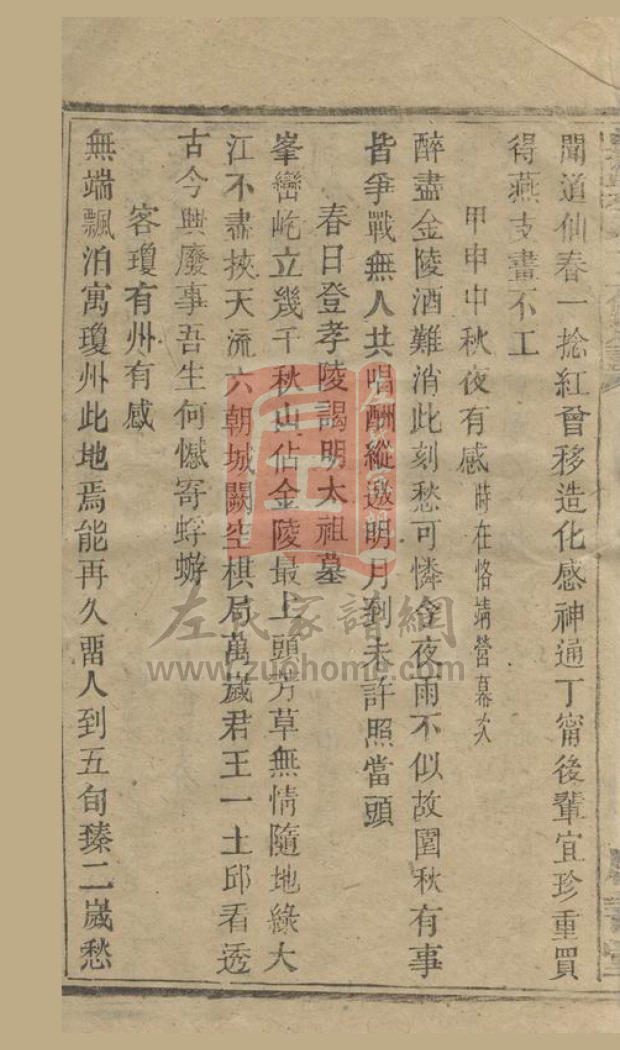 聞道仙春一捻紅曾移造化感神通丁甯後輩宜珍重買
得燕支畫不工
甲申中秋夜有感時在恪靖營幕次
醉盡金陵酒難消此刻愁可憐今夜雨不似故園秋有事
皆爭戰無人共唱酬縱邀明月到未許照當頭
春日登孝陵謁明太祖墓
峯巒屹立幾千秋山佔金陵最上頭芳草無情隨地綠大
江不盡挾天流六朝城闕空棋局萬歲君王一土邱看透
古今興廢事吾生何憾寄蜉蝣
客瓊有州有感
無端飄泊寓瓊州此地焉能再久畱人到五旬臻二歲愁
左氏家譜網
www.zuohome.com